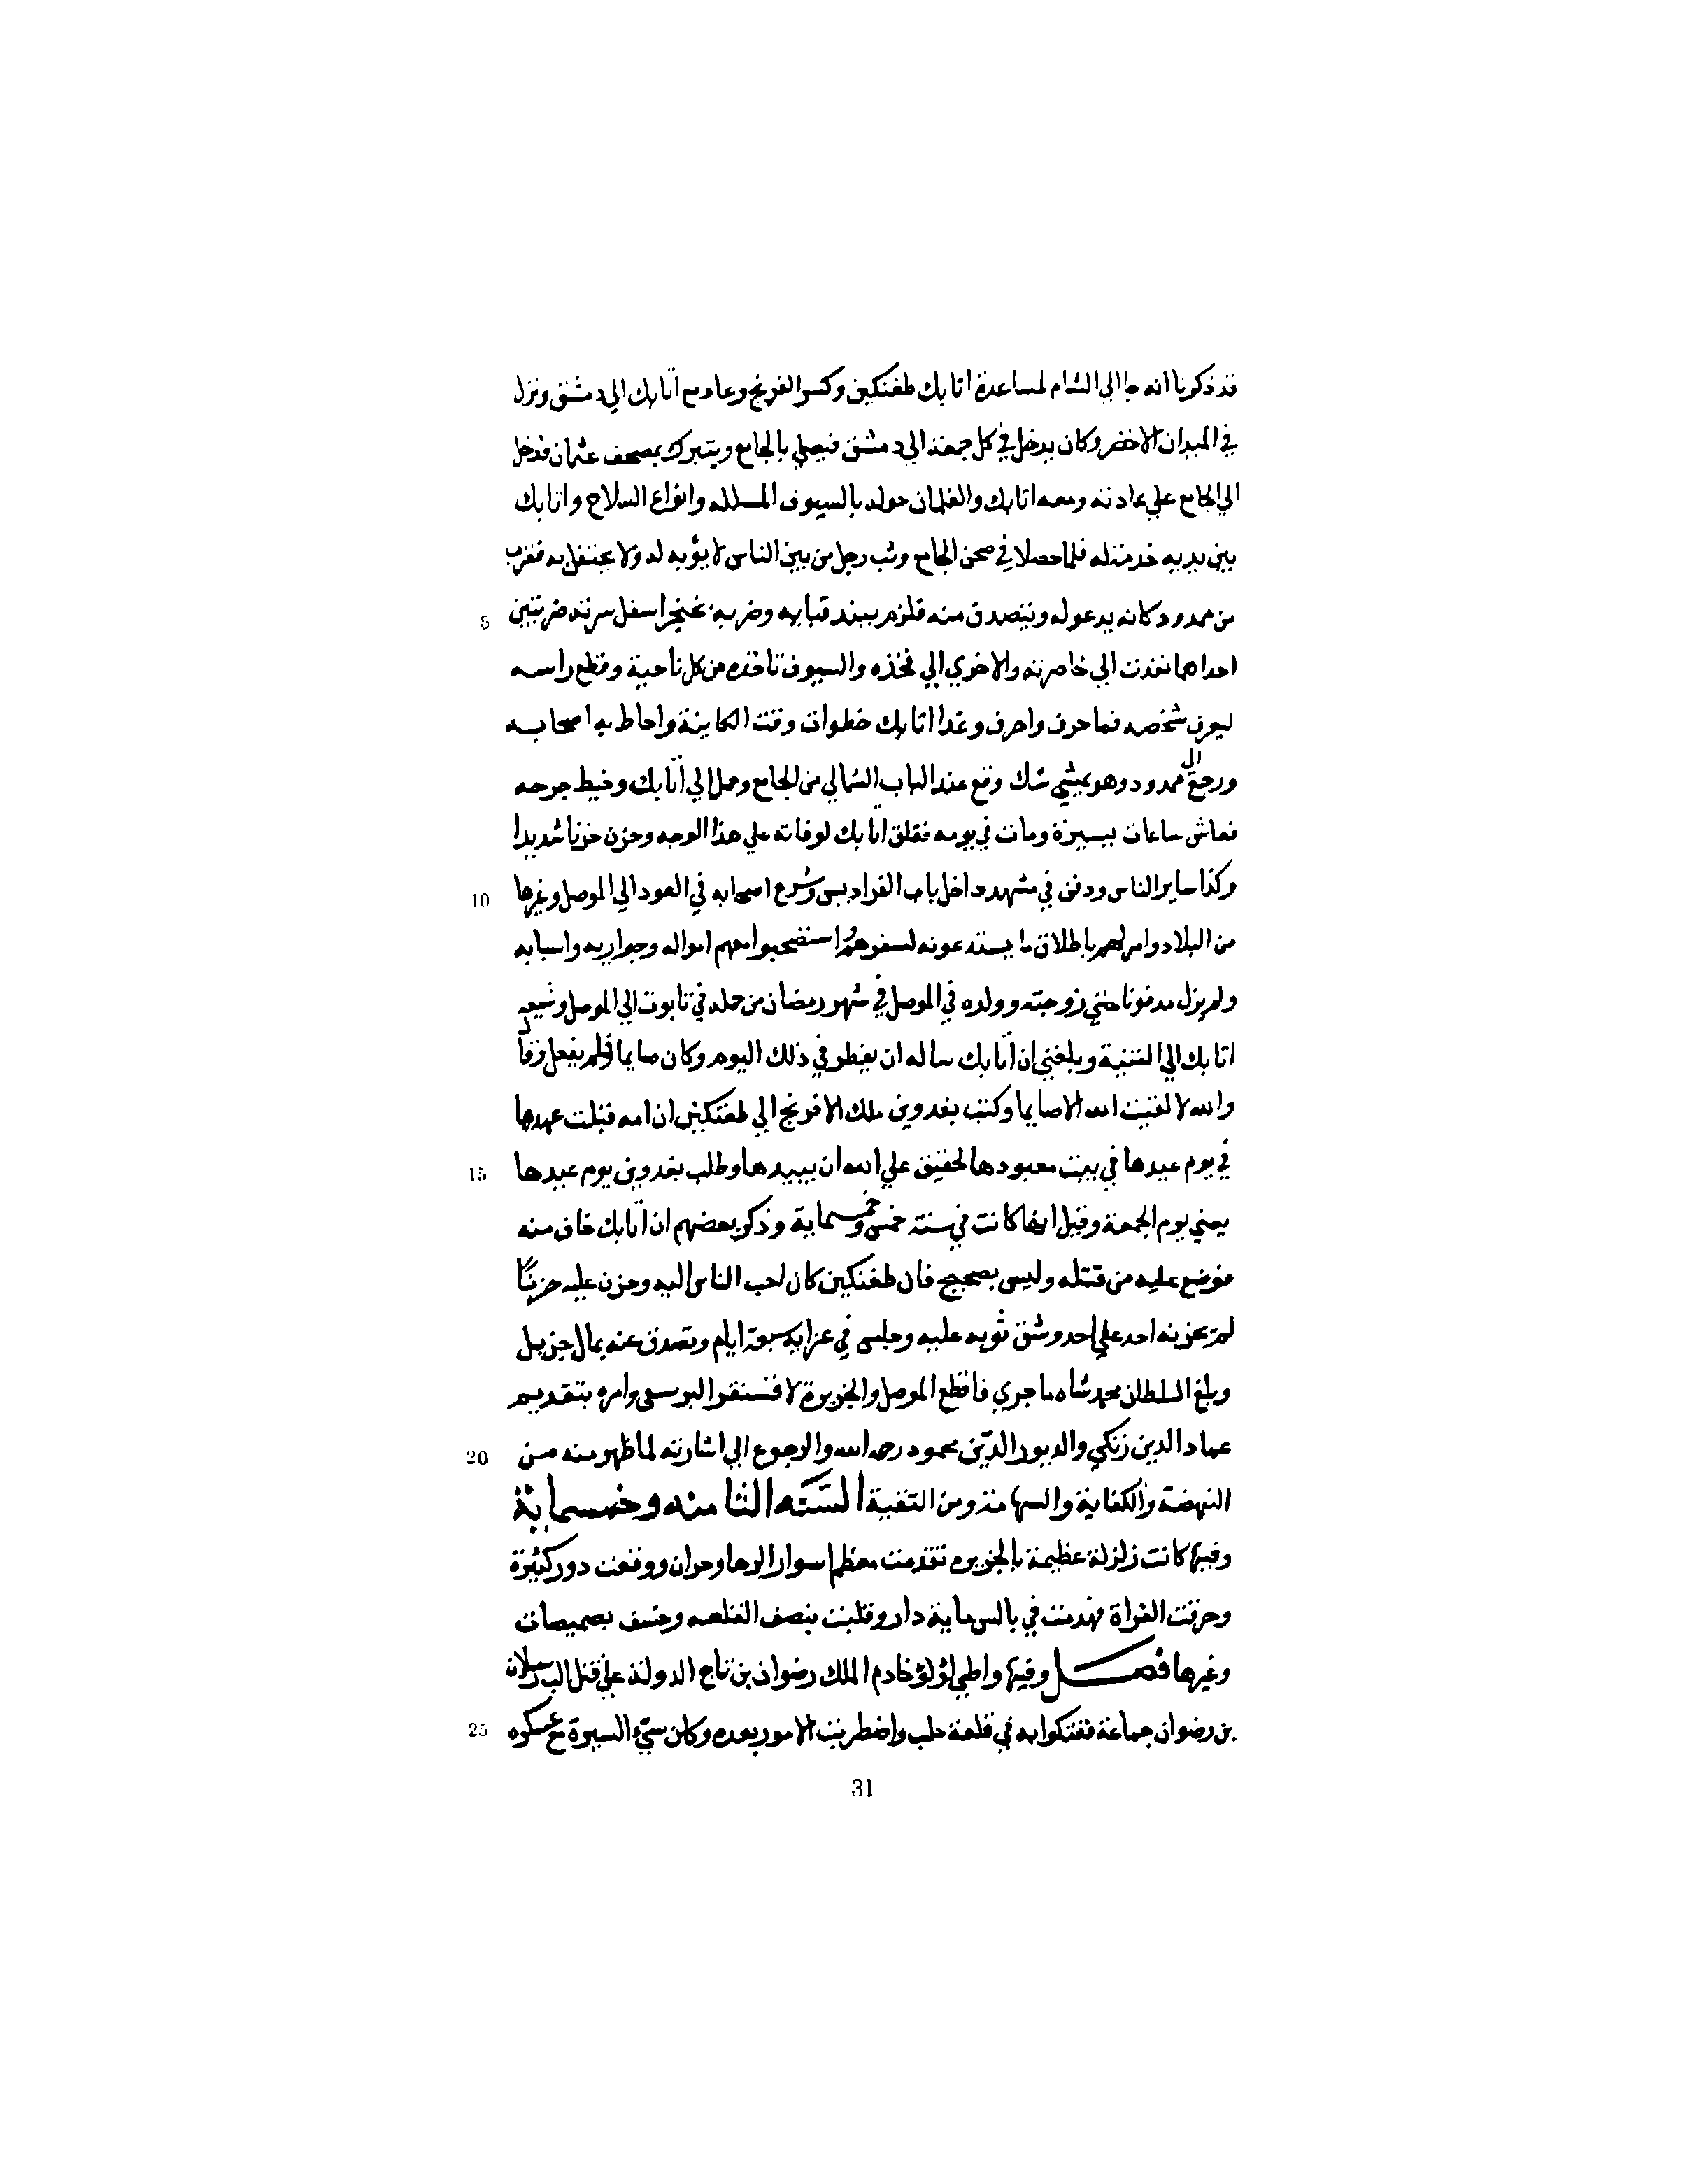 قد ذكرنا انه جا الي الشام لمساعدة اتابك طغتكين وكسر الفرنج وعاد مع اتابك الي دمشق ونزل
في الميدان الاخضر وكان يدخل في كل جمعة الي دمشق فيصلي بالجامع ويتبرك بمصحف عثمان فدخل
الي الجامع علي عادته ومعه اتابك والغلمان حوله بالسيوف المسلله وانواع السلاح واتابك
بين يديه خدمة له فلما حصلا في صحن الجامع وثب رجل من بين الناس لا يؤبه له ولا يحتفل به فقرب
5 من ممدود كانه يدعو له ويتصدق منه فلزم ببند قبايه وضربه بخنجر اسفل سرته ضربتين
احداهما نفذت الي خاصرته والاخري الي فخذه والسيوف تاخذه من كل ناحية وقطع راسه
ليعرف شخصه فما عرف واحرق وغدا اتابك خطوات وقت الكاينة واحاط به اصحابه
ورجع الي ممدود وهو يمشي وقع عند الباب الشمالي من الجامع وحمل الي اتابك وخيط جرحه
فعاش ساعات يسيرة ومات في يومه فقلق اتابك لوفاته علي هذا الوجه وحزن حزنا شديدا
10 وكذا ساير الناس ودفن في مشهد داخل باب الفراديس وشرع اصحابه في العود الي الموصل وغيرها
من البلاد وامر لهم باطلاق ما يستدعونه لسفرهم واستصحبوا معهم امواله وجواريه واسبابه
ولم يزل مدفونا حتي زوجته وولده في الموصل في شهر رمضان من حمله في تابوت الي الموصل وشيعه
اتابك الي الثنية وبلغني ان اتابك ساله ان يفطر في ذلك اليوم وكان صايما فلم يفعل وقال
والله لا لقيت الله الا صايما وكتب بغدوين ملك الافرنج الي طغتكين ان امه قتلت عميدها
15 في يوم عيدها في بيت معبودها لحقيق علي الله ان يبيدها وطلب بغدوين يوم عيدها
يعني يوم الجمعة وقيل انها كانت في سنة خمس وخمسماية وذكر بعضهم ان اتابك خاف منه
فوضع عليه من قتله وليس بصحيح فان طغتكين كان احب الناس اليه وحزن عليه حزنًا
لم يحزنه احد علي احد وشق ثوبه عليه وجلس في عزايه سبعة ايام وتصدق عنه بمال جزيل
وبلغ السلطان محمد شاه ما جري فاقطع الموصل والجزيرة لاقسنقر البرسقي وامره بتقديم
20 عماد الدين زنكي والد نور الدين محمود رحمه الله والرجوع الي اشارته لما ظهر منه من
النهضة والكفاية والشهامة ومن التقية السنة الثامنه وخمسماية
وفيها كانت زلزلة عظيمة بالجزيره تقدمت معظم اسوار الرها وحران ووقعت دور كثيرة
وخرقت الفراة فهدمت في بالس ماية دار وقلبت بنصف القلعه وخسف بصميصات
وغيرها فصل وفيها واطي لؤلؤ خادم الملك رضوان بن تاج الدولة علي قتل الب رسلان
25 بن رضوان جماعة ففتكوا به في قلعة حلب واضطربت الامور بعده وكان سيء السيرة مع عسكره
31